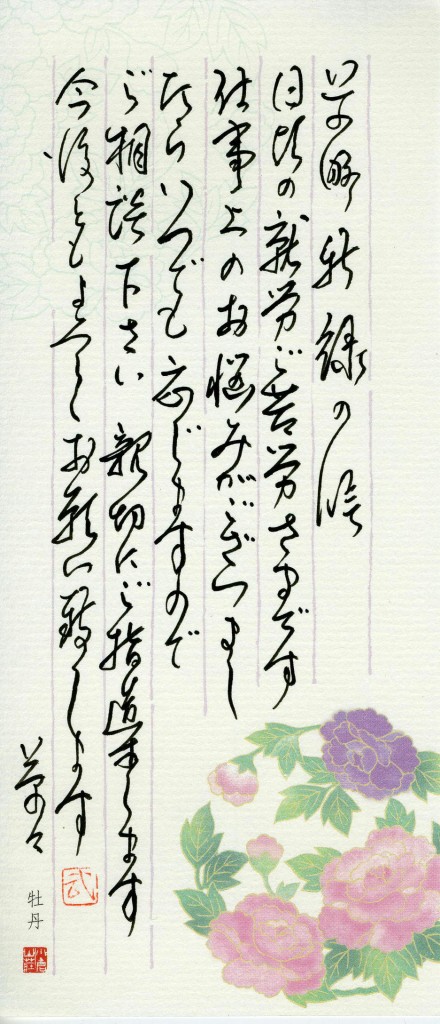 前略 新緑の候
日頃の就労ご苦労さまです
仕事上のお悩みがございまし
たらいつでも応じますので
ご相談下さい 親切にご指導します
今後ともよろしくお願い致します
草々
牡丹